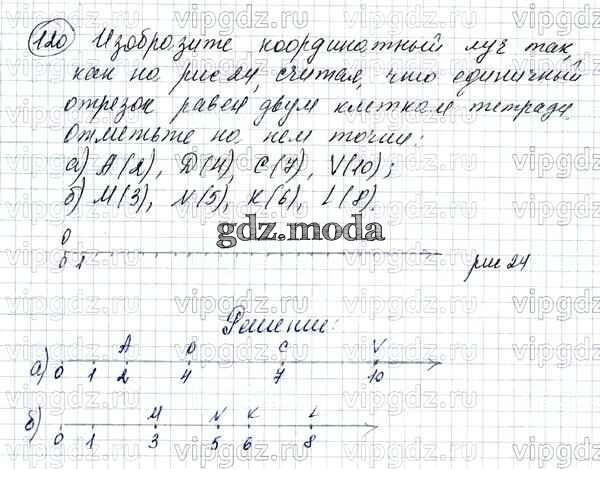 120 Изобразите координатный луч так,
как на рис 24, считая, что единичный
отрезок равен двум клеткам тетради.
Отметьте на нем точки:
а) A(2), D(4), C(7), V(10);
б) M(3), N(5), K(6), L(8).
0
0 1
рис 24
gdz.moda
Решение:
A D C V
а) 0 1 2 4 7 10
M N K L
б) 0 1 3 5 6 8
vipgdz.ru